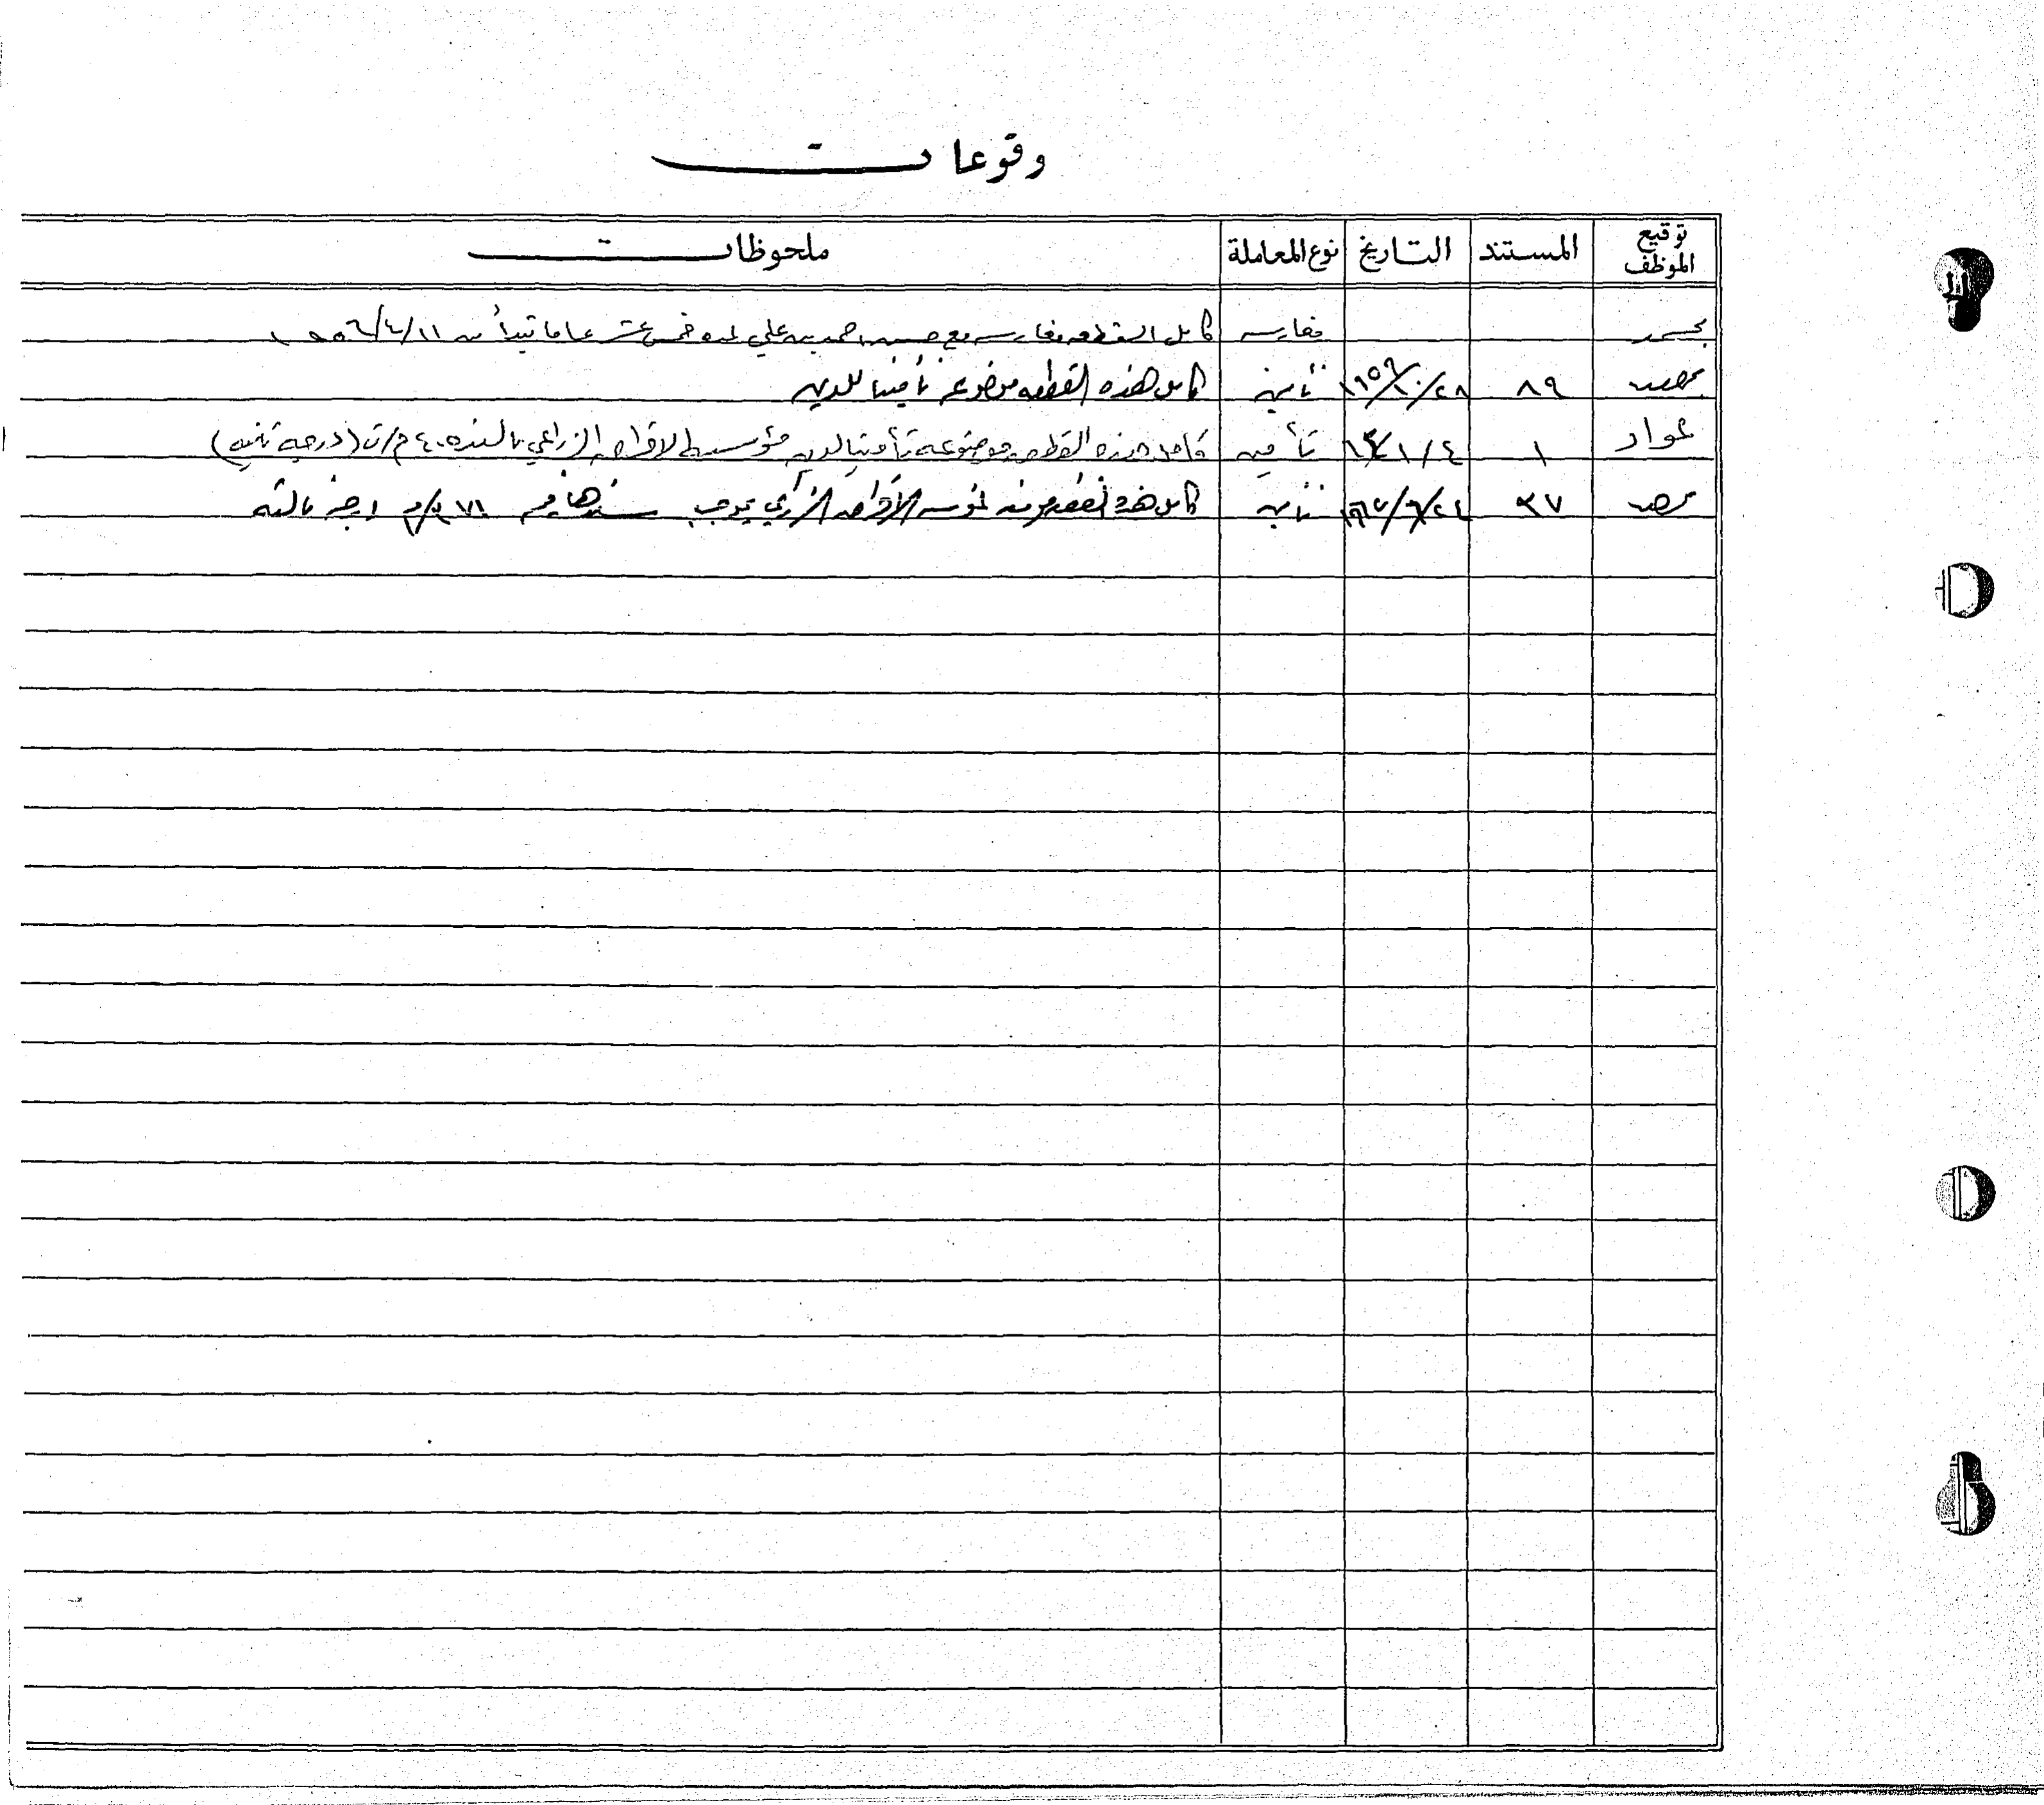 وقوعات
توقيع الموظف المستند التاريخ نوع المعاملة ملحوظات
مغارسه كامل القطعه مغارسه مع حسين احمد علي لمده خمس عشر عاما تبدأ من ١١/٤/١٩٥٦
٨٩ ٢٨/١٠/١٩٥٩ تأمين كامل هذه القطعه موضوعه تأمينا للدين
عواد ١ ٤/١/ تأمين كامل هذه القطعه موضوعه تأمينا لدين مؤسسة الاقراض الزراعي بالسند ٤٠ م/ت (درجه ثانيه)
٣٧ ٢٤/٦/١٩٦٧ تأمين كامل هذه القطعه مرهونه لمؤسسه الأقراض الزراعي بموجب سندها ٧١ درجه ثالثه